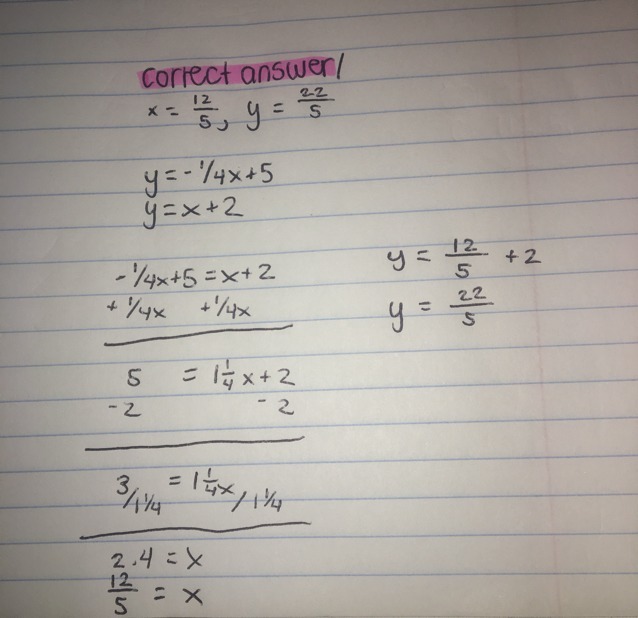 correct answer/
x = 12/5, y = 22/5
y = - 1/4x + 5
y = x + 2
- 1/4x + 5 = x + 2
+ 1/4x + 1/4x
5 = 1 1/4 x + 2
-2 -2
3/1 1/4 = 1 1/4x / 1 1/4
2.4 = x
12/5 = x
y = 12/5 + 2
y = 22/5